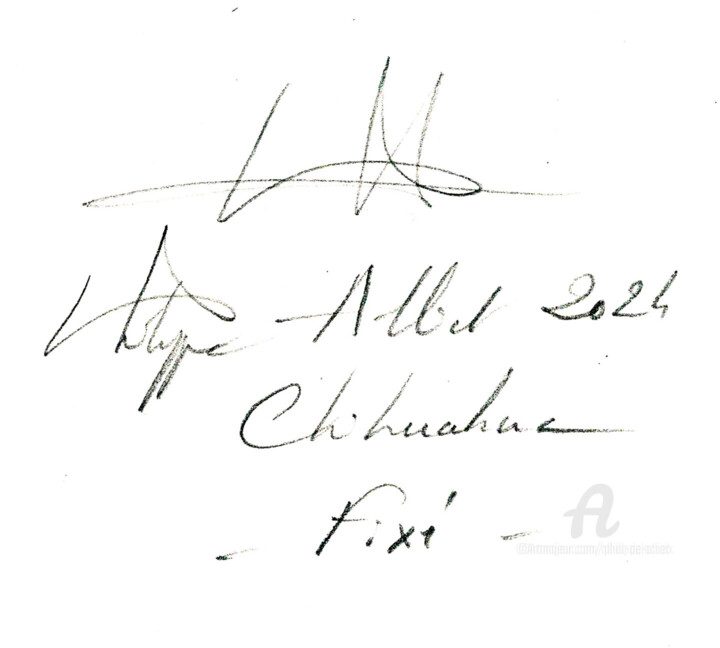 Philippe Albet 2024
Chihuahua
- Fixé -
A
©Artmajeur.com/philippe-albet